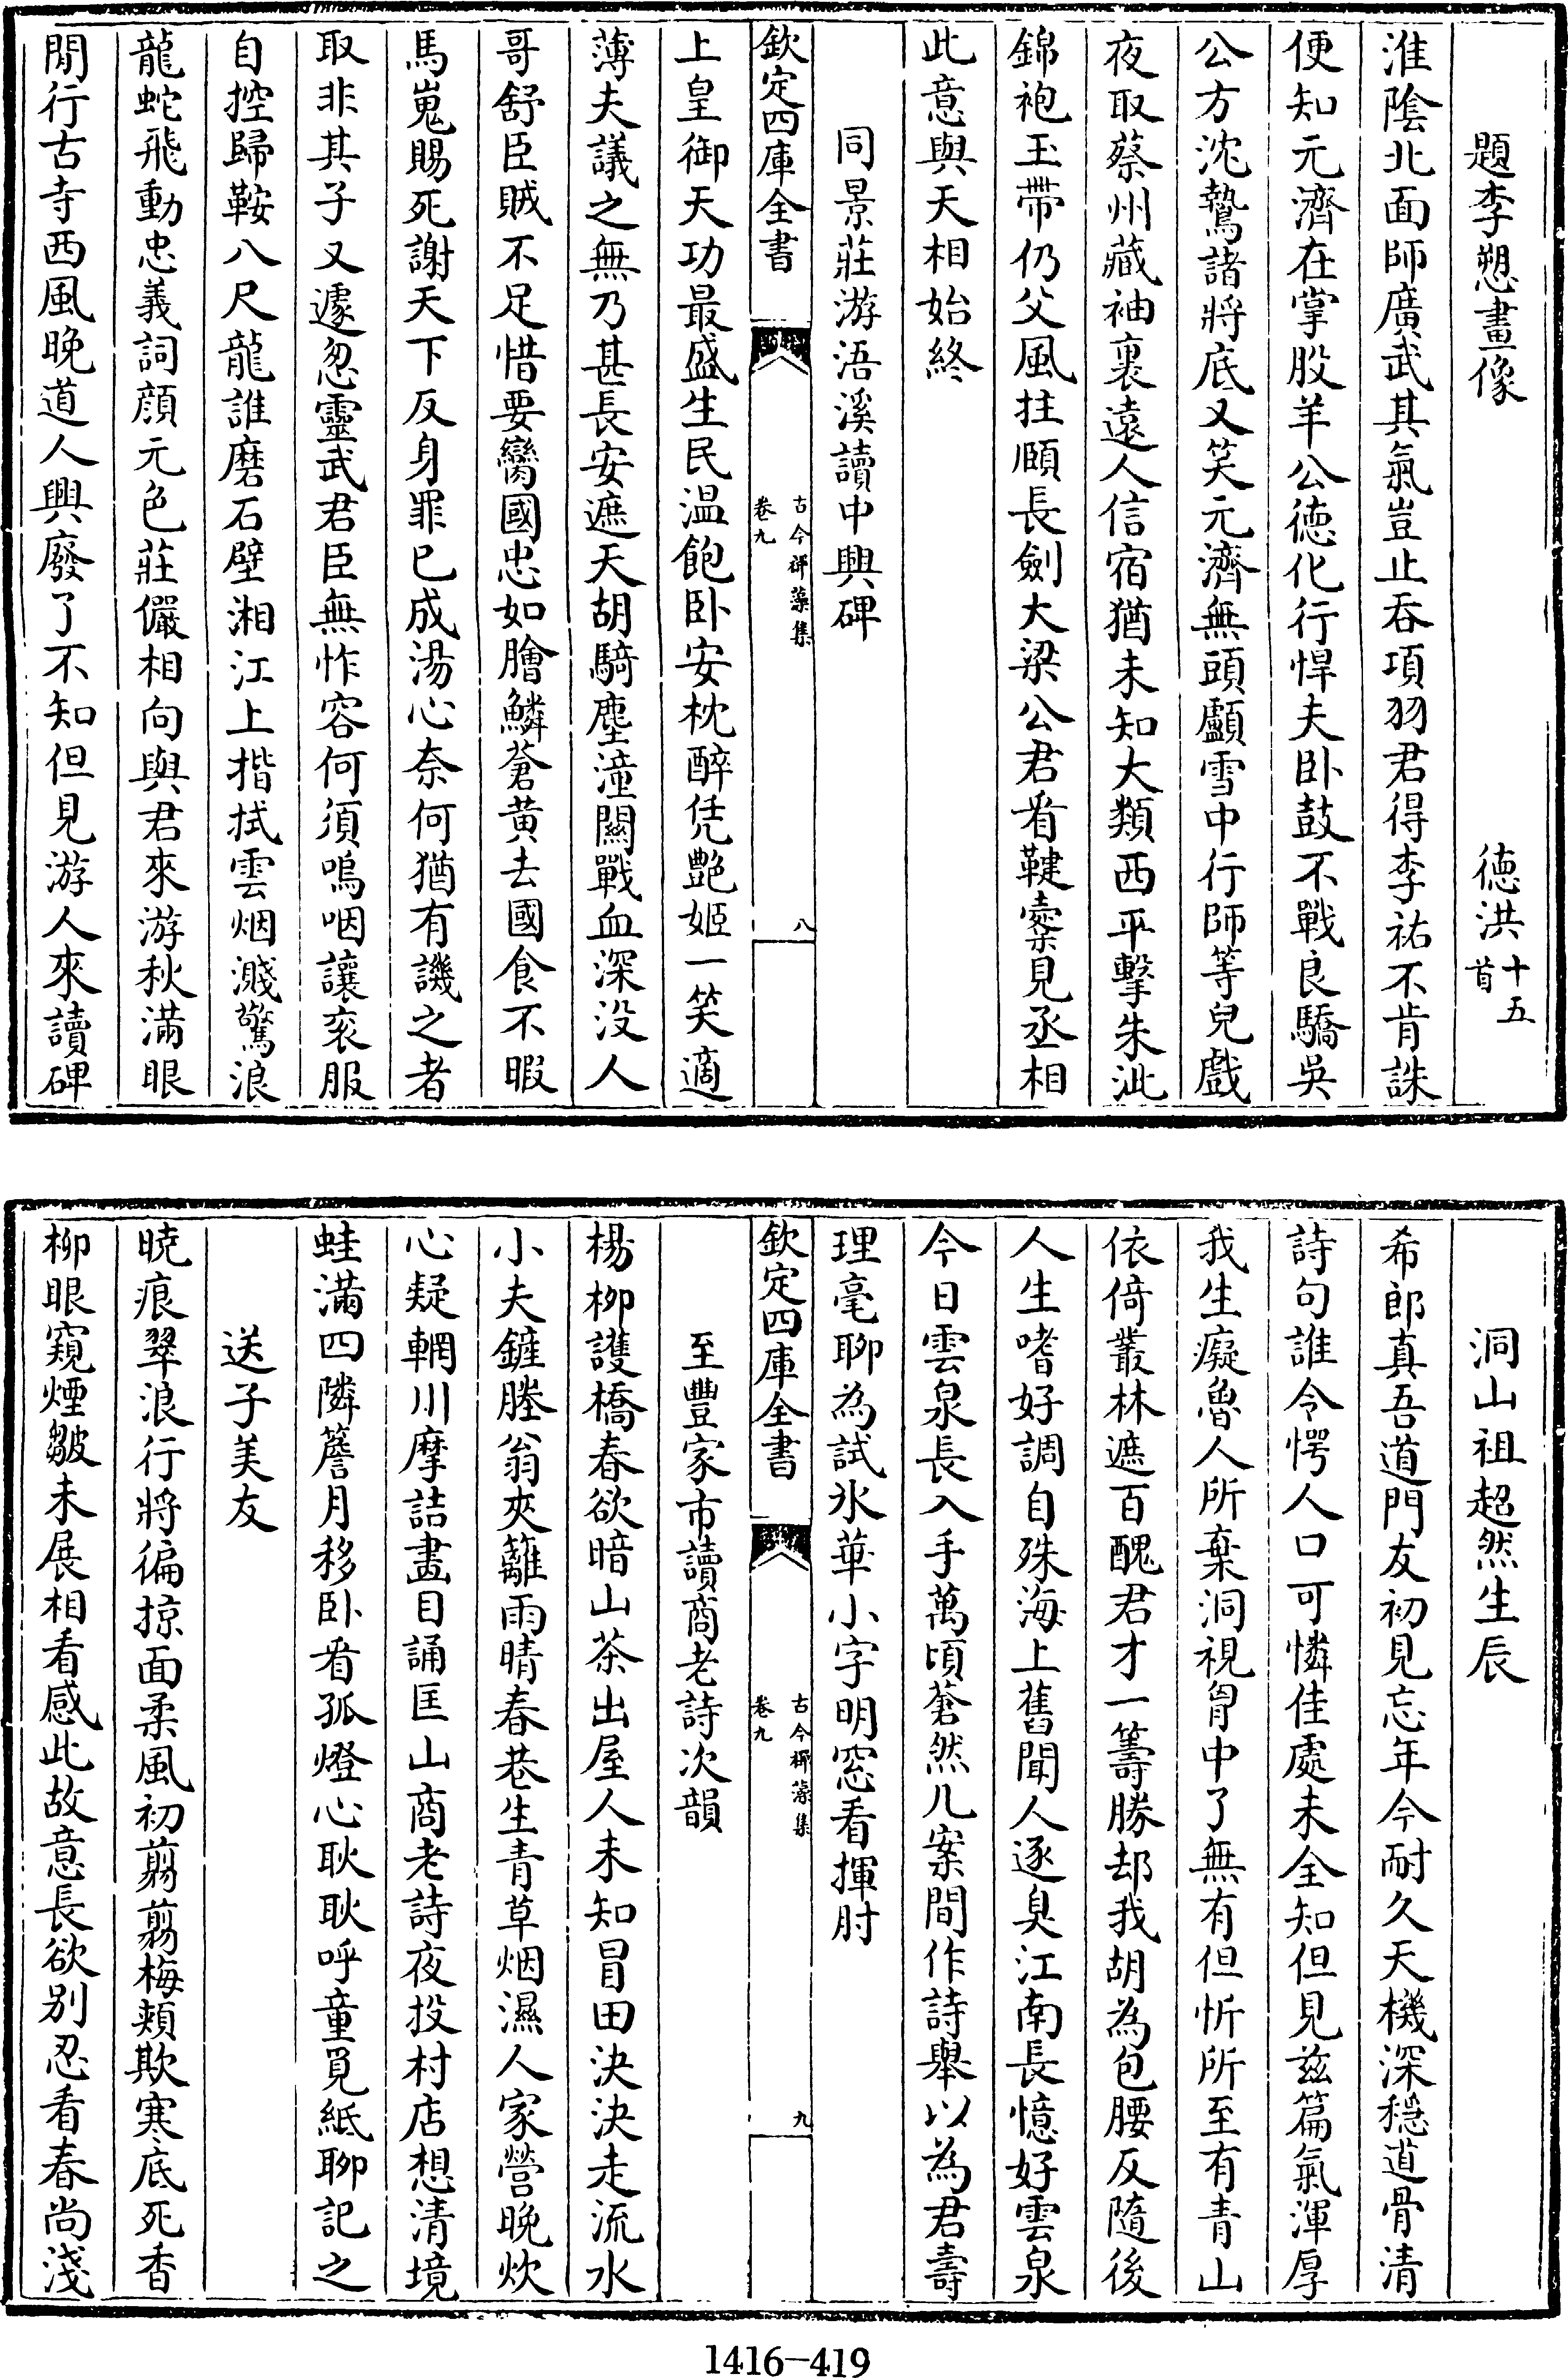 題李愬畫像
德洪十五首
淮陰北面師廣武其氣豈止吞項羽君得李祐不肯誅
便知元濟在掌股羊公德化行悍夫卧鼓不戰良驕吳
公方沈鷙諸將底又笑元濟無頭顱雪中行師等兒戲
夜取蔡州藏袖裏遠人信宿猶未知大類西平擊朱泚
錦袍玉帶仍父風拄頤長劍大梁公君看鞬櫜見丞相
此意與天相始終
同景莊游浯溪讀中興碑
欽定四庫全書
古今禪藻集
卷九
八
上皇御天功最盛生民温飽卧安枕醉凭艷姬一笑適
薄夫議之無乃甚長安遮天胡騎塵潼關戰血深没人
哥舒臣賊不足惜要臠國忠如膾鱗蒼黄去國食不暇
馬嵬賜死謝天下反身罪已成湯心奈何猶有譏之者
取非其子又遽忽靈武君臣無怍容何須嗚咽讓衮服
自控歸鞍八尺龍誰磨石壁湘江上揩拭雲烟濺驚浪
龍蛇飛動忠義詞顔元色莊儼相向與君來游秋滿眼
閒行古寺西風晚道人興廢了不知但見游人來讀碑
洞山祖超然生辰
希郎真吾道門友初見忘年今耐久天機深穩道骨清
詩句誰令愕人口可憐佳處未全知但見兹篇氣渾厚
我生癡魯人所棄洞視胷中了無有但忻所至有青山
依倚叢林遮百醜君才一籌勝却我胡為包腰反隨後
人生嗜好調自殊海上舊聞人逐臭江南長憶好雲泉
今日雲泉長入手萬頃蒼然几案間作詩舉以為君壽
理毫聊為試氷華小字明窓看揮肘
欽定四庫全書
古今禪藻集
卷九
九
至豐家市讀商老詩次韻
楊柳護橋春欲暗山茶出屋人未知冒田決決走流水
小夫鏟塍翁夾籬雨晴春巷生青草烟濕人家營晚炊
心疑輞川摩詰畫目誦匡山商老詩夜投村店想清境
蛙滿四隣簷月移卧看孤燈心耿耿呼童覓紙聊記之
送子美友
曉痕翠浪行將徧掠面柔風初翦翦梅頰欺寒底死香
柳眼窺煙皺未展相看感此故意長欲别忍看春尚淺
1416-419